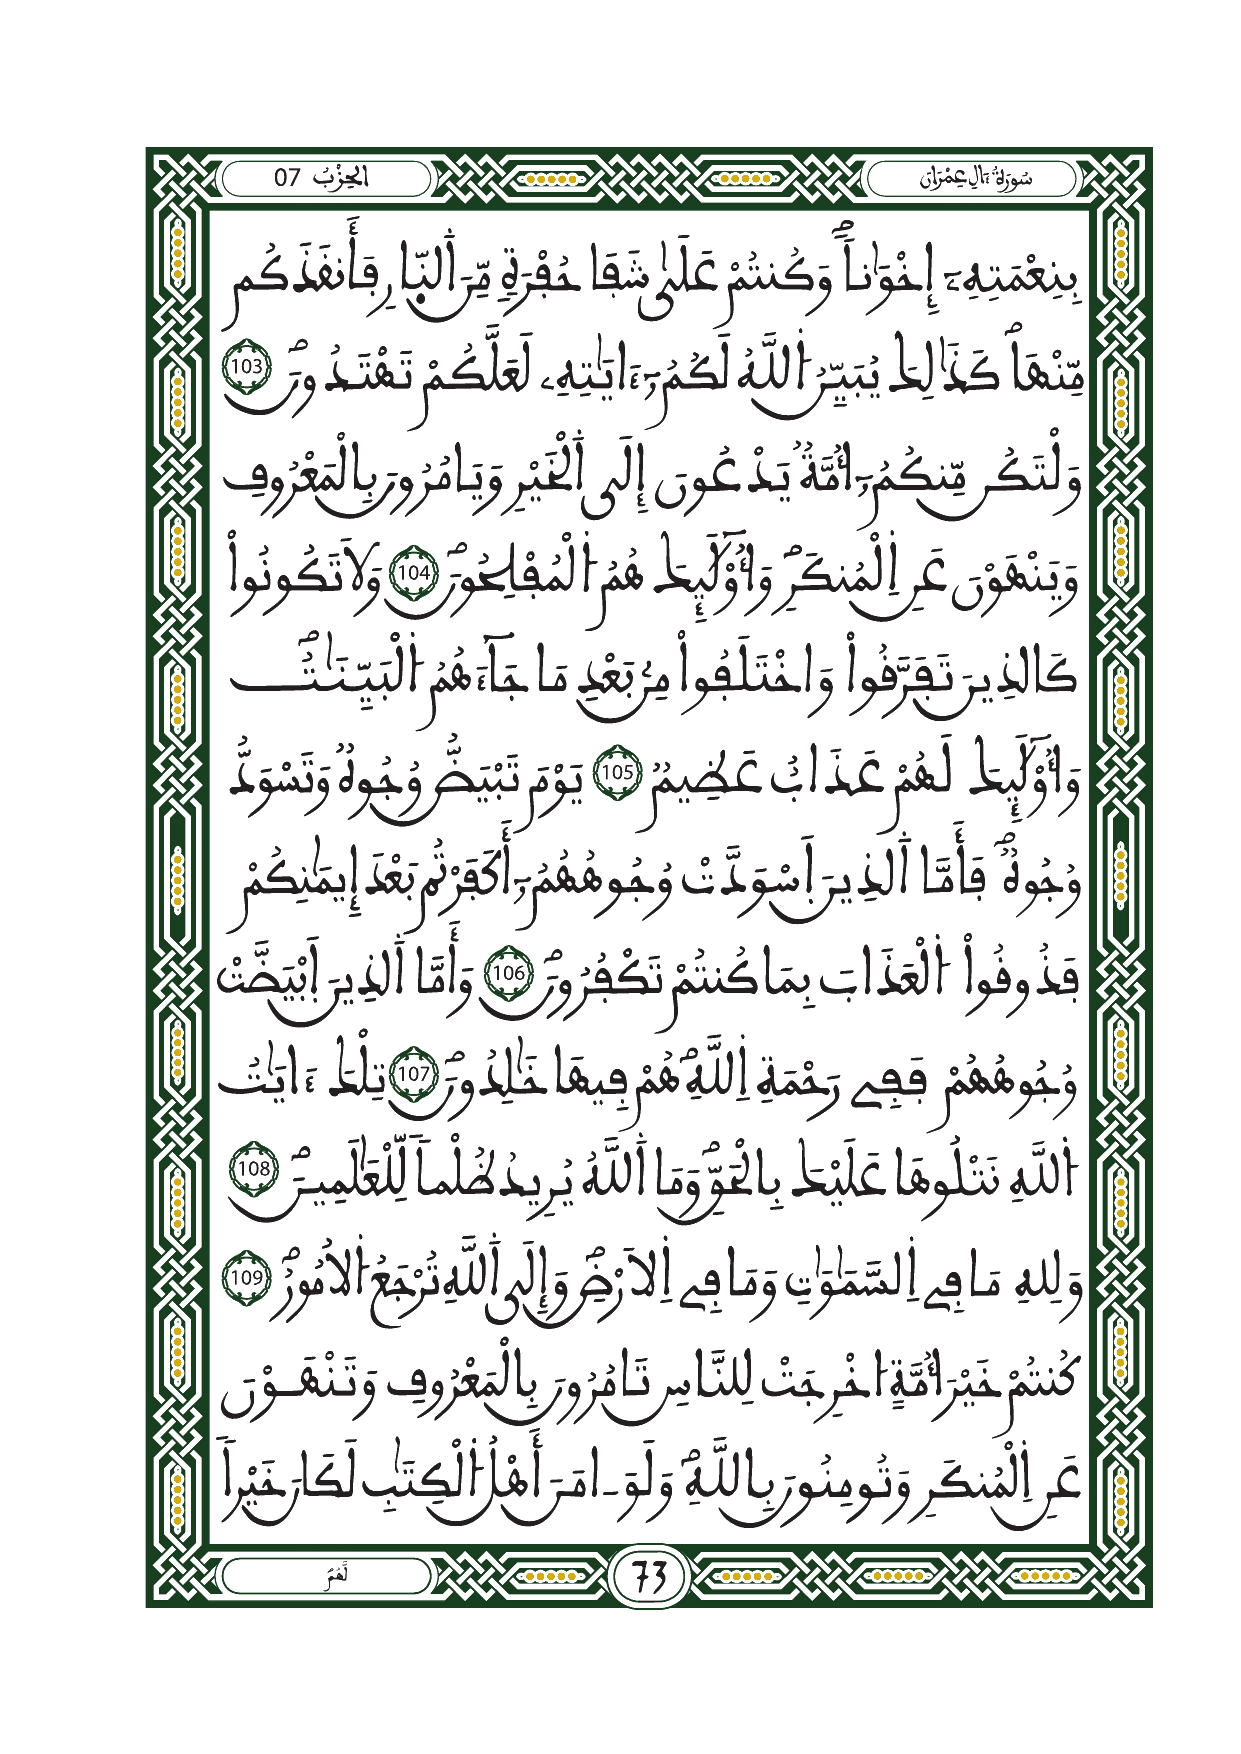 سُورَةُ ءَالِ عِمْرَانَ
الحِزْبُ 07
بِنِعْمَتِهِۦٓ إِخْوَٰناٗۖ وَكُنتُمْ عَلَىٰ شَفَا حُفْرَةٖ مِّنَ اَ۬لنّ۪ارِ فَأَنقَذَكُم
مِّنْهَاۖ كَذَٰلِكَ يُبَيِّنُ اُ۬للَّهُ لَكُمُۥٓ ءَايَٰتِهِۦ لَعَلَّكُمْ تَهْتَدُونَۖ 103
وَلْتَكُن مِّنكُمُۥٓ أُمَّةٞ يَدْعُونَ إِلَى اَ۬لْخَيْرِ وَيَامُرُونَ بِالْمَعْرُوفِ
وَيَنْهَوْنَ عَنِ اِ۬لْمُنكَرِۖ وَأُوْلَٰٓئِكَ هُمُ اُ۬لْمُفْلِحُونَۖ 104 وَلَا تَكُونُواْ
كَالذِينَ تَفَرَّقُواْ وَاخْتَلَفُواْ مِنۢ بَعْدِ مَا جَآءَهُمُ اُ۬لْبَيِّنَٰتُۖ
وَأُوْلَٰٓئِكَ لَهُمْ عَذَابٌ عَظِيمٞ 105 يَوْمَ تَبْيَضُّ وُجُوهٞ وَتَسْوَدُّ
وُجُوهٞۖ فَأَمَّا اَ۬لذِينَ اَ۪سْوَدَّتْ وُجُوهُهُمُۥٓ أَكَفَرْتُم بَعْدَ إِيمَٰنِكُمْ
فَذُوقُواْ اُ۬لْعَذَابَ بِمَا كُنتُمْ تَكْفُرُونَۖ 106 وَأَمَّا اَ۬لذِينَ اَ۪بْيَضَّتْ
وُجُوهُهُمْ فَفِے رَحْمَةِ اِ۬للَّهِۖ هُمْ فِيهَا خَٰلِدُونَۖ 107 تِلْكَ ءَايَٰتُ
اُ۬للَّهِ نَتْلُوهَا عَلَيْكَ بِالْحَقِّۖ وَمَا اَ۬للَّهُ يُرِيدُ ظُلْماٗ لِّلْعَٰلَمِينَۖ 108
وَلِلهِ مَا فِے اِ۬لسَّمَٰوَٰتِ وَمَا فِے اِ۬لَارْضِۖ وَإِلَى اَ۬للَّهِ تُرْجَعُ اُ۬لُامُورُۖ 109
كُنتُمْ خَيْرَ أُمَّةٍ ا۟خْرِجَتْ لِلنَّاسِ تَامُرُونَ بِالْمَعْرُوفِ وَتَنْهَوْنَ
عَنِ اِ۬لْمُنكَرِ وَتُومِنُونَ بِاللَّهِۖ وَلَوَ اٰمَنَ أَهْلُ اُ۬لْكِتَٰبِ لَكَانَ خَيْراٗ
لَّهُمۖ
73